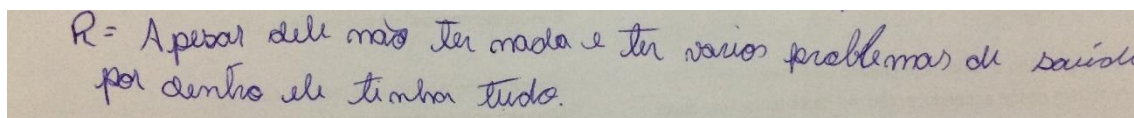 R= Apesar dele não ter nada e ter varios problemas de saúde
por dentro ele tinha tudo.